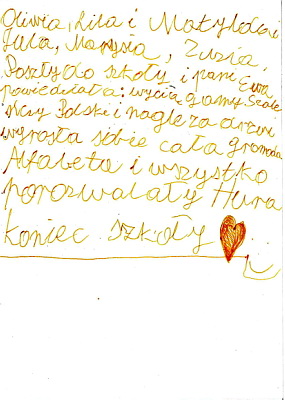 Oliwia, Lila i Matylda i
Jula, Marysia, Zuzia,
Poszły do szkoły i pani Ewa
powiedziała: wyciągamy
Polski i nagle za drzwi
wyrosła sobie cała gromada
Alfabeta i wszystko
porozwalały Hura
koniec szkoły